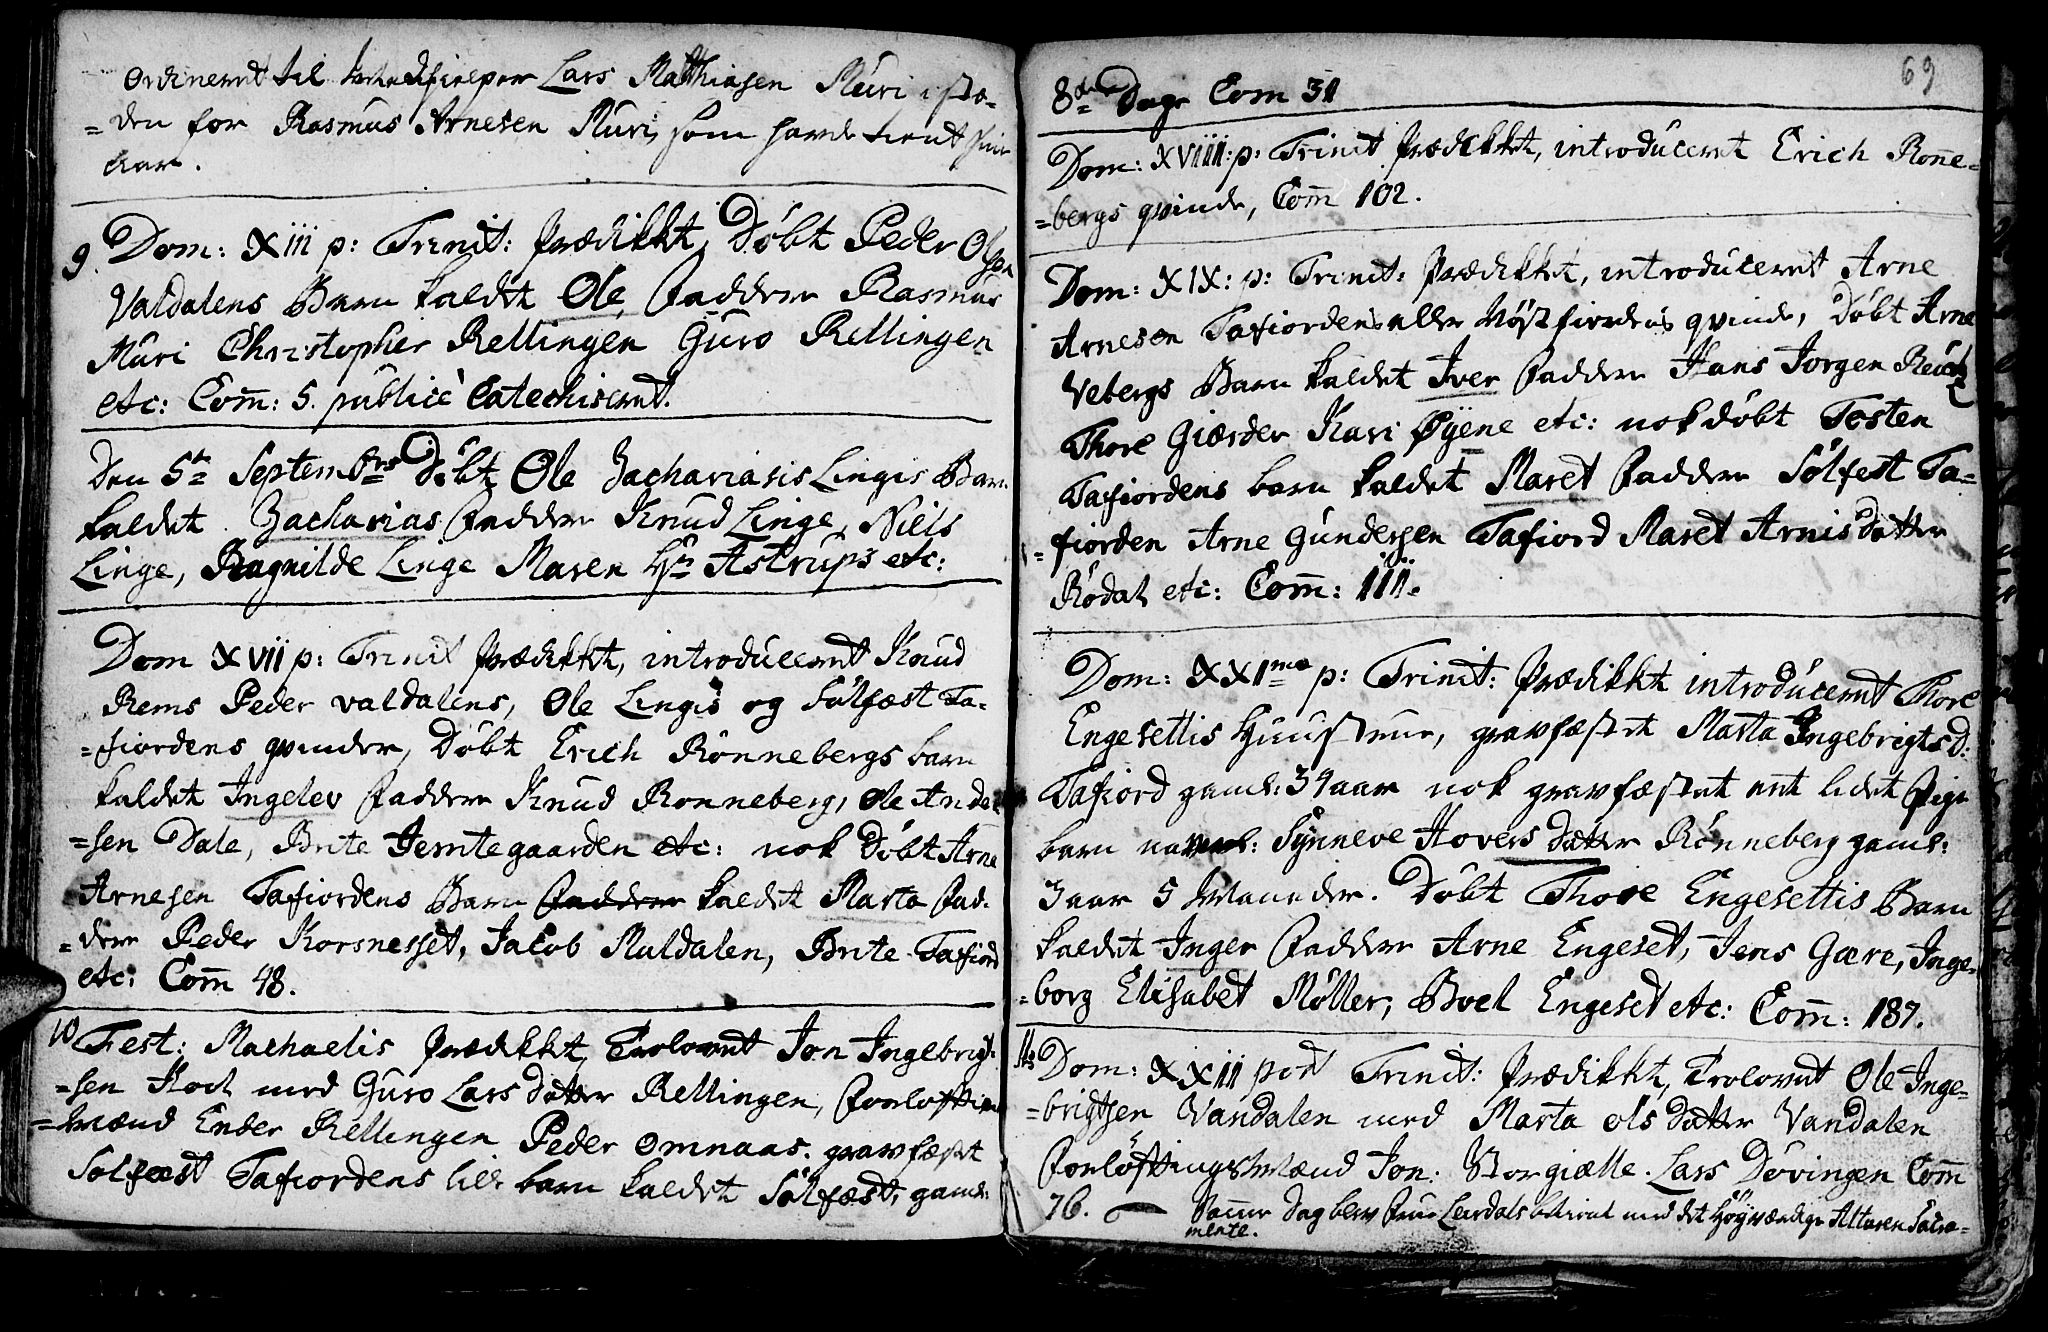 Ordinerert til Lars Matthiasen Muri i stæ-
=den for Rasmus Arnesen Muri, som hafde tient sine
Aar.
9. Dom: XIII p: Trinit: Prædikket, Døbt Peder Olsen
Valdalens Barn kaldet Ole, Faddere Rasmus
Muri Christopher Rellingen Guro Rellingen
etc: Com̄: 5. publicè Catechiseret.
Den 5te Septembris Døbt Ole Zachariasis Linges Barn
kaldet Zacharias Faddere Knud Linge, Niels
Linge, Ragnilde Linge Maren Hr Astrups etc:
Dom XVII p: Trinit Prædikket, introduceret Knud
Rems Peder Valdalens, Ole Lingis og Sølfæst Ta-
=fiordens qvinder, Døbt Erich Rønnebergs barn
kaldet Ingelev Faddere Knud Ronneberg, Ole Ander
=sen Dale, Brite Jemtegaarden etc: nok Døbt Arne
Arnesen Tafiordens Barn Faddere kaldet Marta Fad-
=dere Peder Korsnesset, Jacob Muldalen, Brite Tafiord
etc: Com̄ 48.
10 Fest: Machaelis Prædikket, Trolovet Jon Ingebrigt-
=sen Hoel med Guro Lars Datter Rellingen, Forløftings
=Mænd Ender Rellingen Peder Omnaas. gravfæstet
Solfæst Tafiordens lille barn kaldet Sølfæst, gaml:
69
8de Dage Com 31
Dom: XVIIII: p: Trinit Prædikket, introduceret Erich Rønne-
=bergs qvinde, Com̄ 102.
Dom: XIX: p: Trinit: Prædikket, introduceret Arne
Arnesen Tafiordens eller Nøstfiordens qvinde, Døbt Arne
Vebergs Barn kaldet Iver Faddere Hans Jorgen
Thore Giærder Kari Øyene etc: nok døbt Tosten
Tafiordens barn kaldet Maret Faddere Sølfest Ta-
=fiorden Arne Gundersen Tafiord Maret Arnis datter
Rødal etc: Com̄: 111.
Dom: XXIma p: Trinit: Prædikket introduceret Thore
Engesettis Huustrue, gravfæstet Marta Ingebrigts D:
Tafiord gaml: 34 aar nok gravfæstet et lidet Pige
barn navnl: Synneve Hovers datter Rønneberg gaml:
3 aar 5 Maaneder. Døbt Thore Engesettis Barn
kaldet Inger Faddere Arne Engeset, Jens Gære, Inge-
=borg Elisabet Møller, Boel Engeset etc: Com̄: 187.
11. Dom: XXII post Trinit: Prædikket, Trolovet Ole Inge-
=brigtsen Vandalen med Marta Ols Datter Vandalen
Forløftings Mænd Jon Storgiælle. Lars Døvingen Com̄
76. Samme Dag blev Frue Leirdals betient med det Høyværdige Altarens Sacra-
mente.